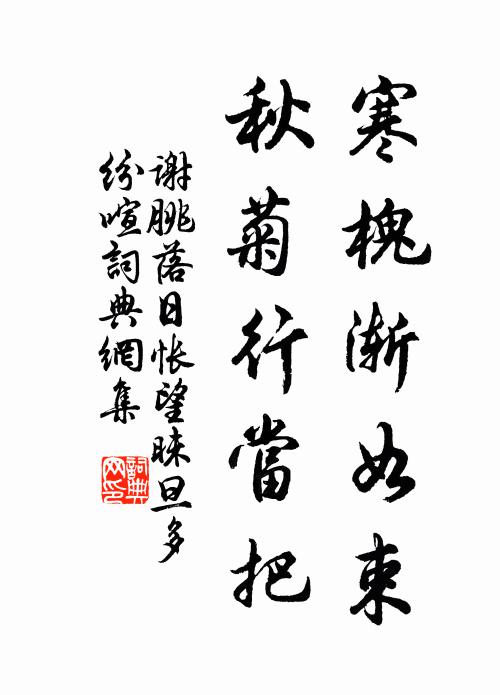 寒槐渐如束
秋菊行當把
谢朓落日怅望昧旦多
纷喧詞典網集
詞典
网印